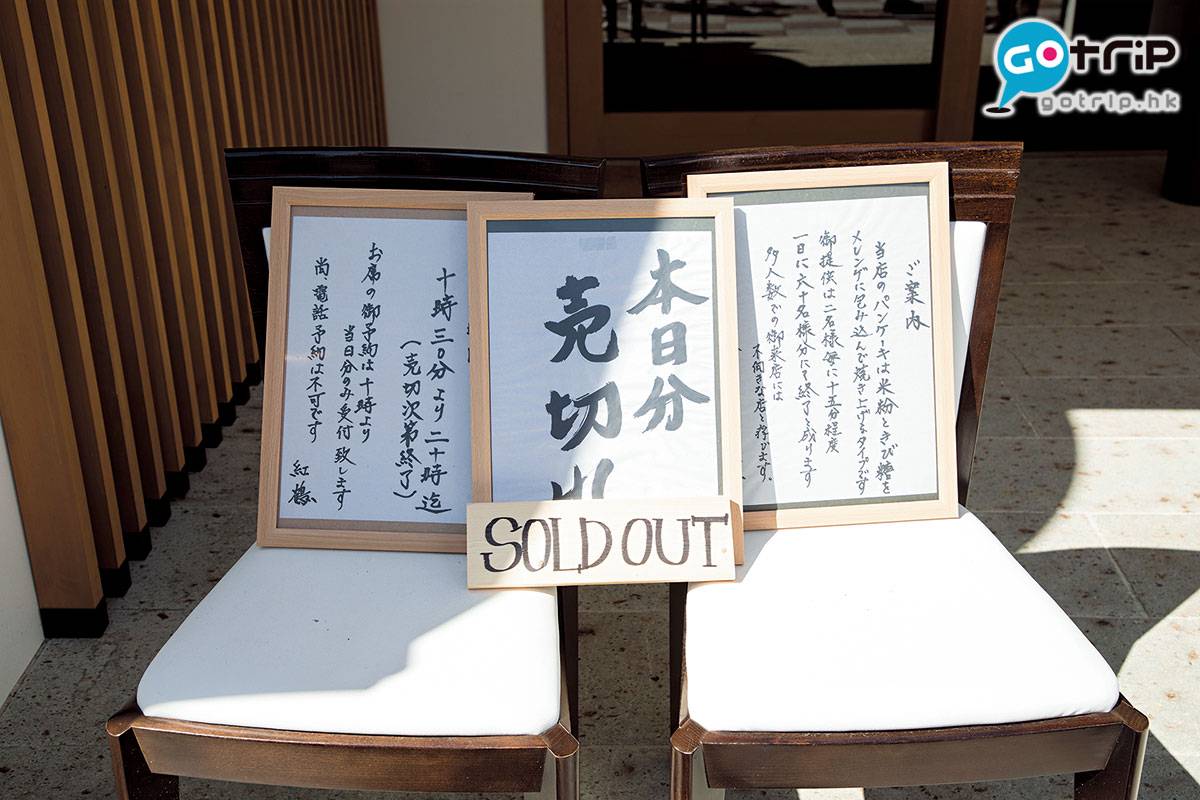 GOTRIP
gotrip.hk
十時三〇分より二十時迄
（売切次第終了）
お席の御予約は十時より
当日分のみ受付致します
尚、電話予約は不可です
紅鶴
本日分
売切
SOLD OUT
ご案内
当店のパンケーキは米粉ときび糖を
メレンゲに包み込んで焼き上げるタイプです
御提供は二名様毎に十五分程度
一日に六十名様分にて終了と成ります
多人数での御来店には
不向きな店と存じます。